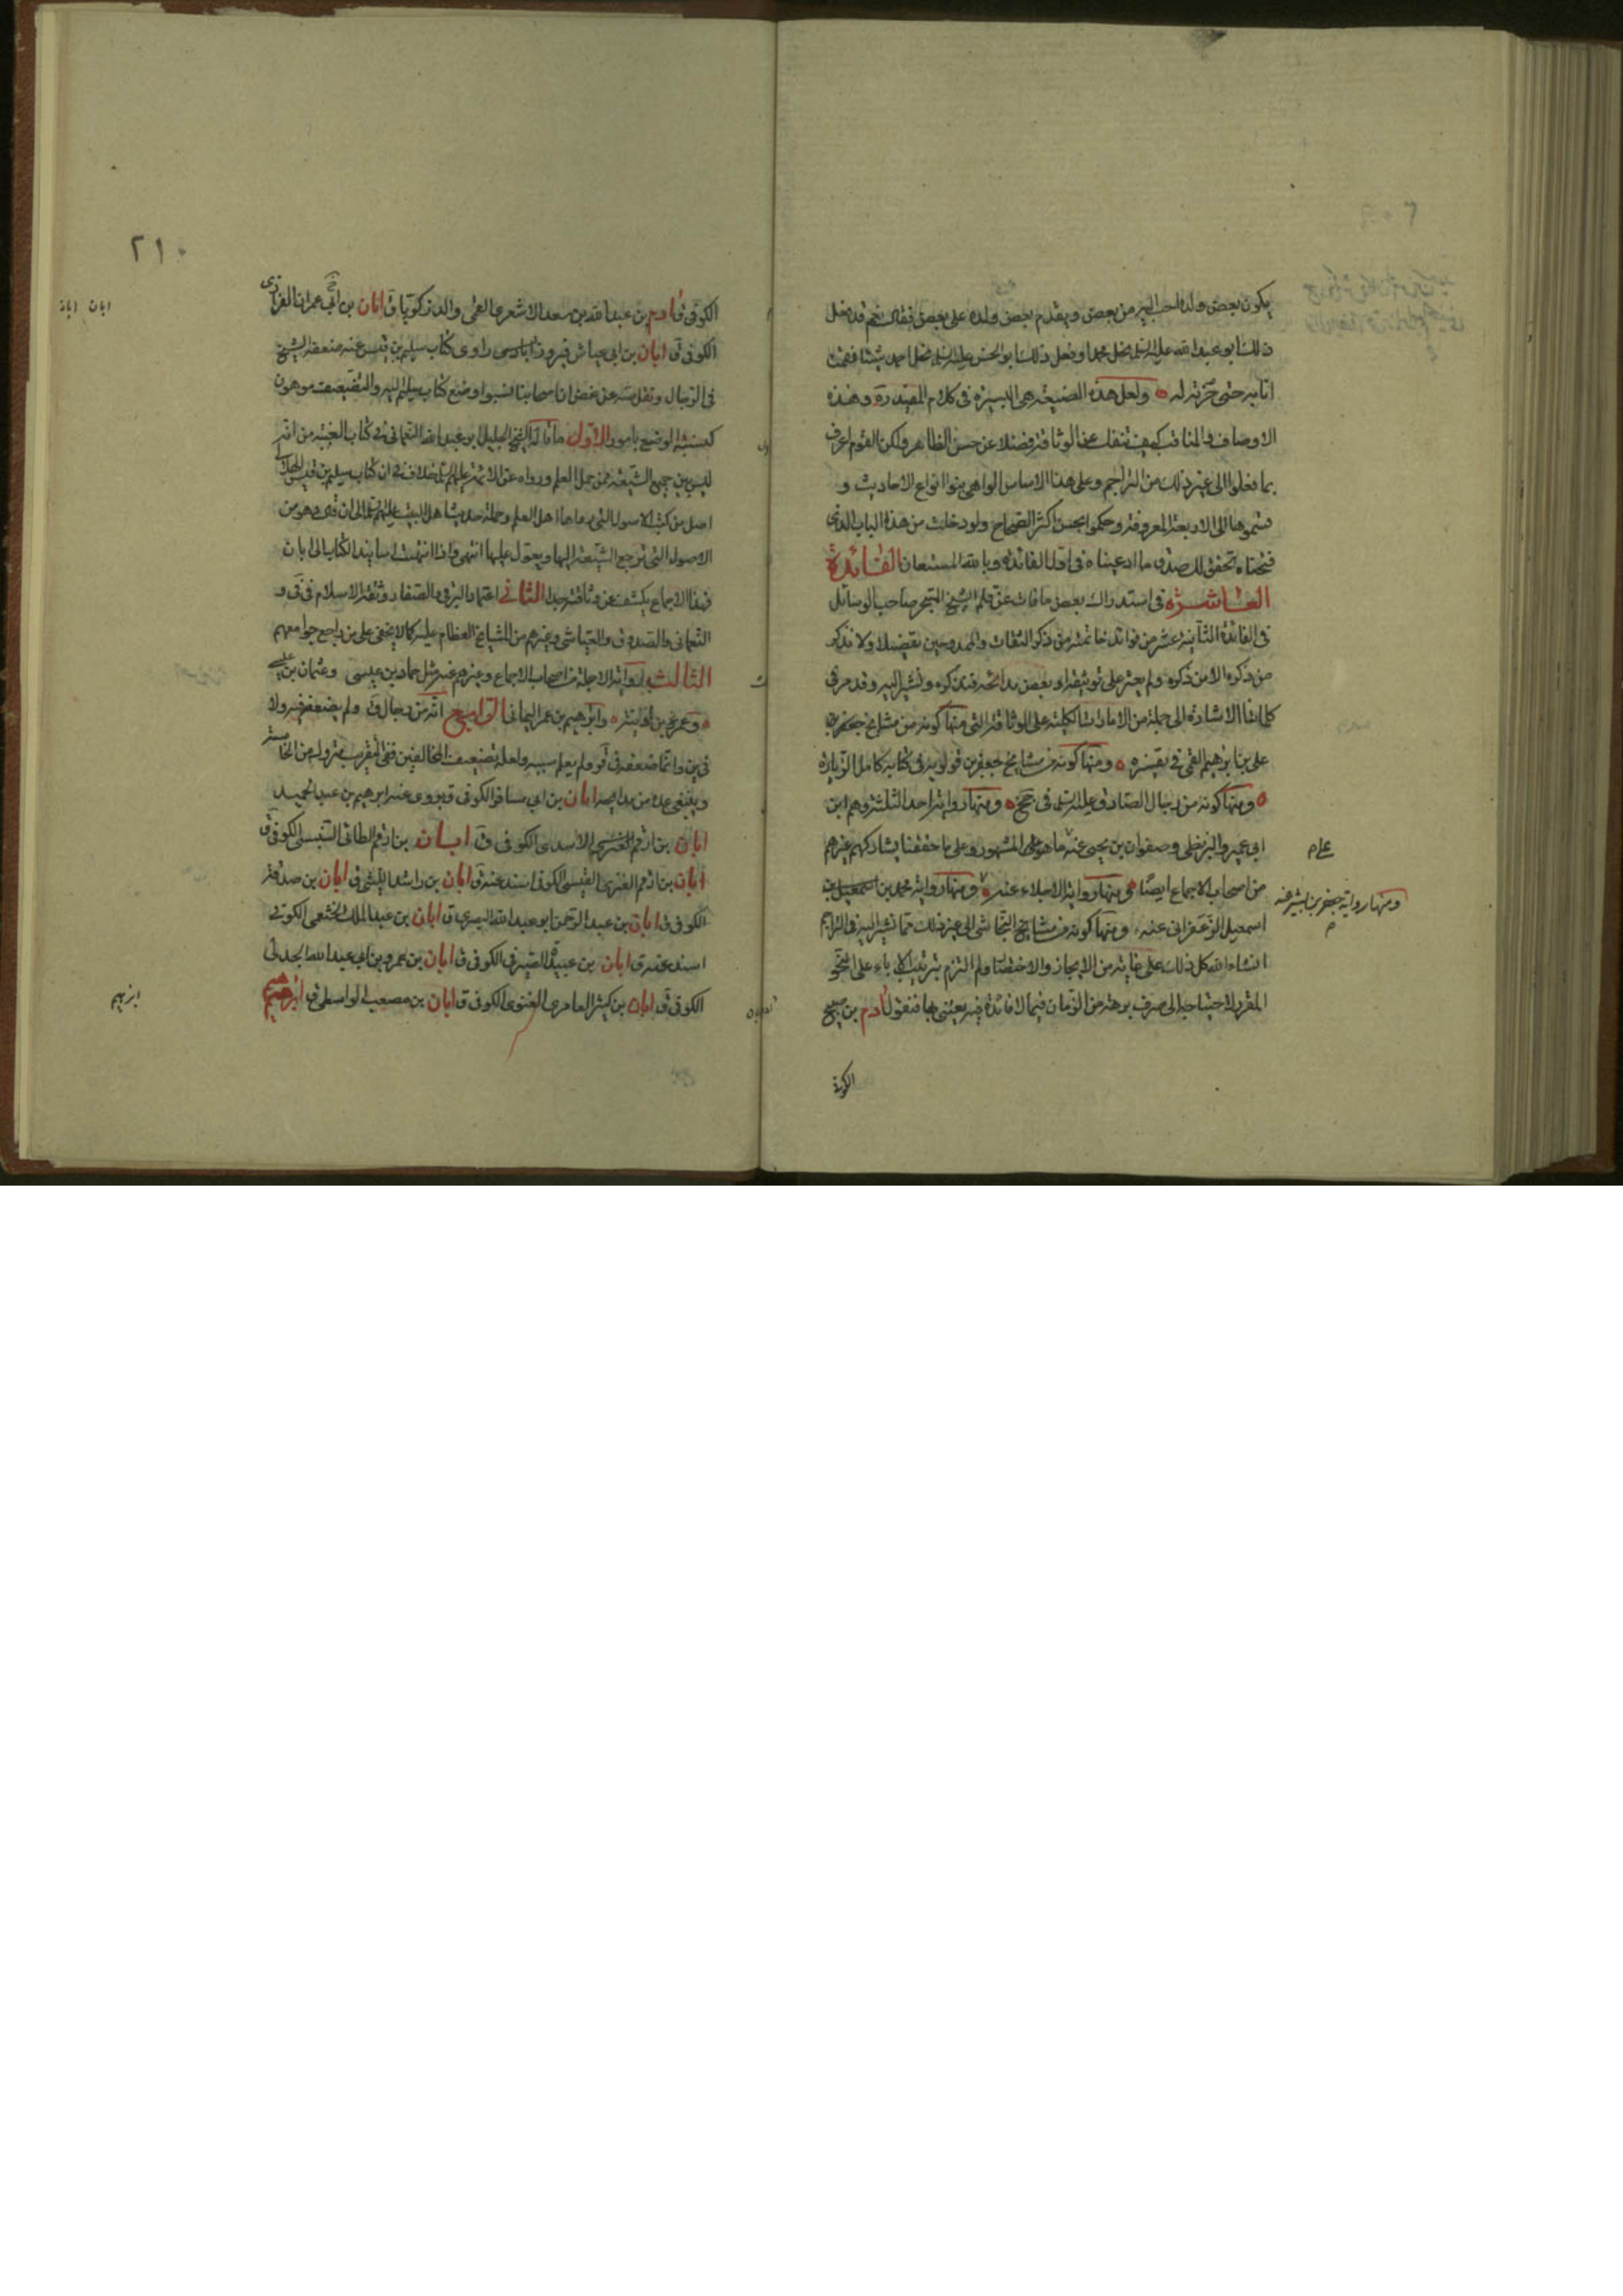 يكون بعض ولده احب اليه من بعض ويقدم بعض ولده على بعض فقال نعم قد فعل
ذلك ابو عبد الله عليه السلم نحل محمدا وفعل ذلك ابو الحسن عليه السلم نحل احمد شيئا فقمت
انا به حتى حزته له ولعل هذه الصنيعة هي اليسيرة في كلام المفيد ره وهذه
الاوصاف والمناقب كيف تنفك عن الوثاقة فضلا عن حسن الظاهر ولكن القوم اعرف
بما فعلوا الى غير ذلك من التراجم وعلى هذا الاساس الواهي بنوا انواع الاحاديث و
قسموها الى الاربعة المعروفة وحكموا بحسن اكثر الصحاح ولو دخلت من هذا الباب الذي
فتحناه تحقق لك صدق ما ادعيناه في اول الفائدة وبالله المستعان الفائدة
العاشرة في استدراك بعض ما فات عن قلم الشيخ المتبحر صاحب الوسائل
في الفائدة الثانية عشر من فوائد خاتمته من ذكر الثقات والممدوحين تفصيلا ولا نذكر
من ذكره الا من ذكره ولم يعثر على توثيقه او بعض مدائحه فنذكره ونشير اليه وقد مر في
كلماتنا الاشارة الى جملة من الامارات الكلية على الوثاقة التي منها كونه من مشايخ جعفر بن
على بن ابرهيم القمي في تفسيره ومنها كونه من مشايخ جعفر بن قولويه في كتابه كامل الزيارة
ومنها كونه من رجال الصادق عليه السلم في جخ ومنها رواية احد الثلثة وهم ابن
ابي عمير والبزنطي وصفوان بن يحيى عنه ما هو المشهور وعلى ما حققنا يشاركهم غيرهم
من اصحاب الاجماع ايضا ومنها رواية الاجلاء عنه ومنها رواية محمد بن اسمعيل بن
ومنها رواية جعفر بن بشير عنه
اسمعيل الزعفراني عنه ومنها كونه من مشايخ النجاشي الى غير ذلك مما نشير اليه في التراجم
انشاء الله كل ذلك على غاية من الايجاز والاختصار ولم التزم بترتيب الاباء على النحو
المقرر لاحتياجه الى صرف برهة من الزمان فيما لا فائدة فيه يعتنى بها فنقول ادم بن صبيح
الكوفي
٢١٠
ابان ابان
الكوفي ق ادم بن عبد الله بن سعد الاشعري القمي والد زكريا ق ابان بن ابي عمران الفزاري
الكوفي ق ابان بن ابي عياش فيروز راوى كتاب سليم بن قيس عنه ضعفه الشيخ
في الرجال ونقل صه عن غض ان اصحابنا نسبوا وضع كتاب سليم اليه والتضعيف موهون
كنسبة الوضع بامور الاول ما قاله الشيخ الجليل ابو عبد الله النعماني في كتاب الغيبة من انه
ليس بين جميع الشيعة ممن حمل العلم ورواه عن الائمة عليهم السلم خلاف في ان كتاب سليم بن قيس الهلالي
اصل من كتب الاصول التي رواها اهل العلم وحملة حديث اهل البيت عليهم السلم الى ان قال وهو من
الاصول التي ترجع الشيعة اليها ويعول عليها انتهى واذا انتهت اسانيد الكتاب الى ابان
فهذا الاجماع يكشف عن وثاقته جدا الثاني اعتماد البرقي والصفار وثقة الاسلام في في و
النعماني والصدوق والعياشي وغيرهم من المشايخ العظام عليه كما لا يخفى على من راجع جوامعهم
الثالث رواية الاجلة من اصحاب الاجماع وغيرهم عنه مثل حماد بن عيسى وعثمان بن عيسى
وعمر بن اذينة وابرهيم بن عمر اليماني الرابع انه من رجال ق ولم يضعفه فيه ولا
في ين وانما ضعفه في قر ولم يعلم سببه ولعله تضعيف المخالفين ففي التقريب متروك من الخامسة
وينبغي عده من مدايحه ابان بن ابي مسافر الكوفي ق يروى عنه ابرهيم بن عبد الحميد
ابان بن ارقم العنزي الاسدى الكوفي ق ابان بن ارقم الطائي السنبسي الكوفي ق
ابان بن ارقم العنزى القيسي الكوفي اسند عنه ق ابان بن راشد الليثي ق ابان بن صدقة
الكوفي ق ابان بن عبد الرحمن ابو عبد الله البصري ق ابان بن عبد الملك الخثعمي الكوفي
اسند عنه ق ابان بن عبيدة الصيرفي الكوفي ق ابان بن عمرو بن ابي عبد الله الجدلي
الكوفي ق ابان بن كثير العامرى الغنوى الكوفي ق ابان بن مصعب الواسطي ق ابرهيم
ابرهيم